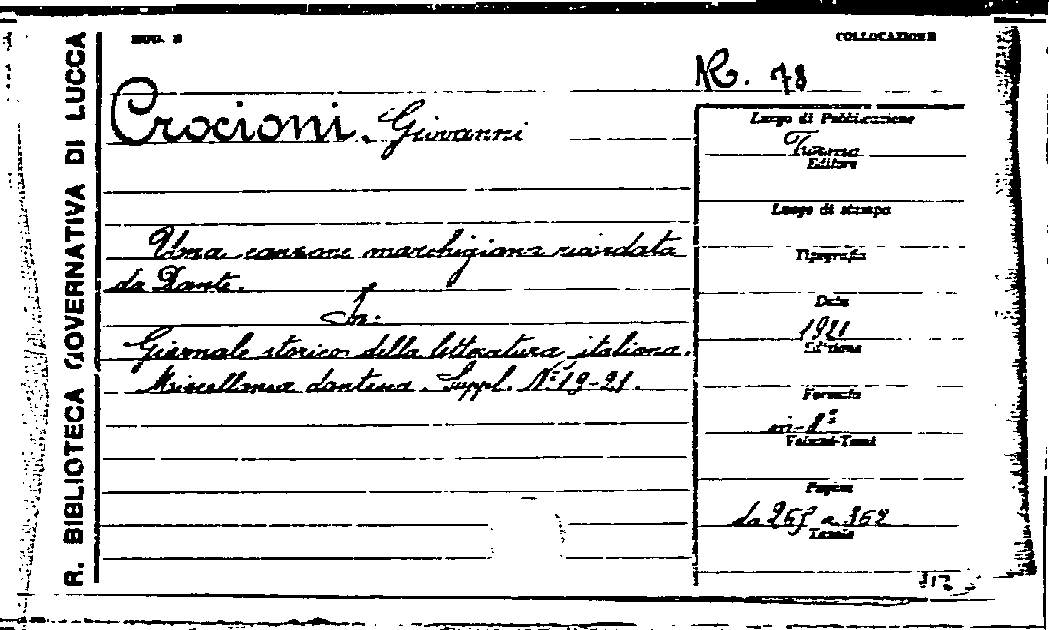 R. BIBLIOTECA GOVERNATIVA DI LUCCA
MOD. 8
COLLOCAZIONE
R. 78
Crocioni Giovanni
Una canzone marchigiana ricordata
da Dante.
In:
Giornale storico della letteratura italiana.
Miscellanea dantesca. Suppl. Nº 19-21.
Luogo di Pubblicazione
Torino
Editore
Luogo di stampa
Tipografia
Data
1921
Edizione
Formato
in-8º
Volumi-Tomi
Pagine
da 265 a 362
Tavole